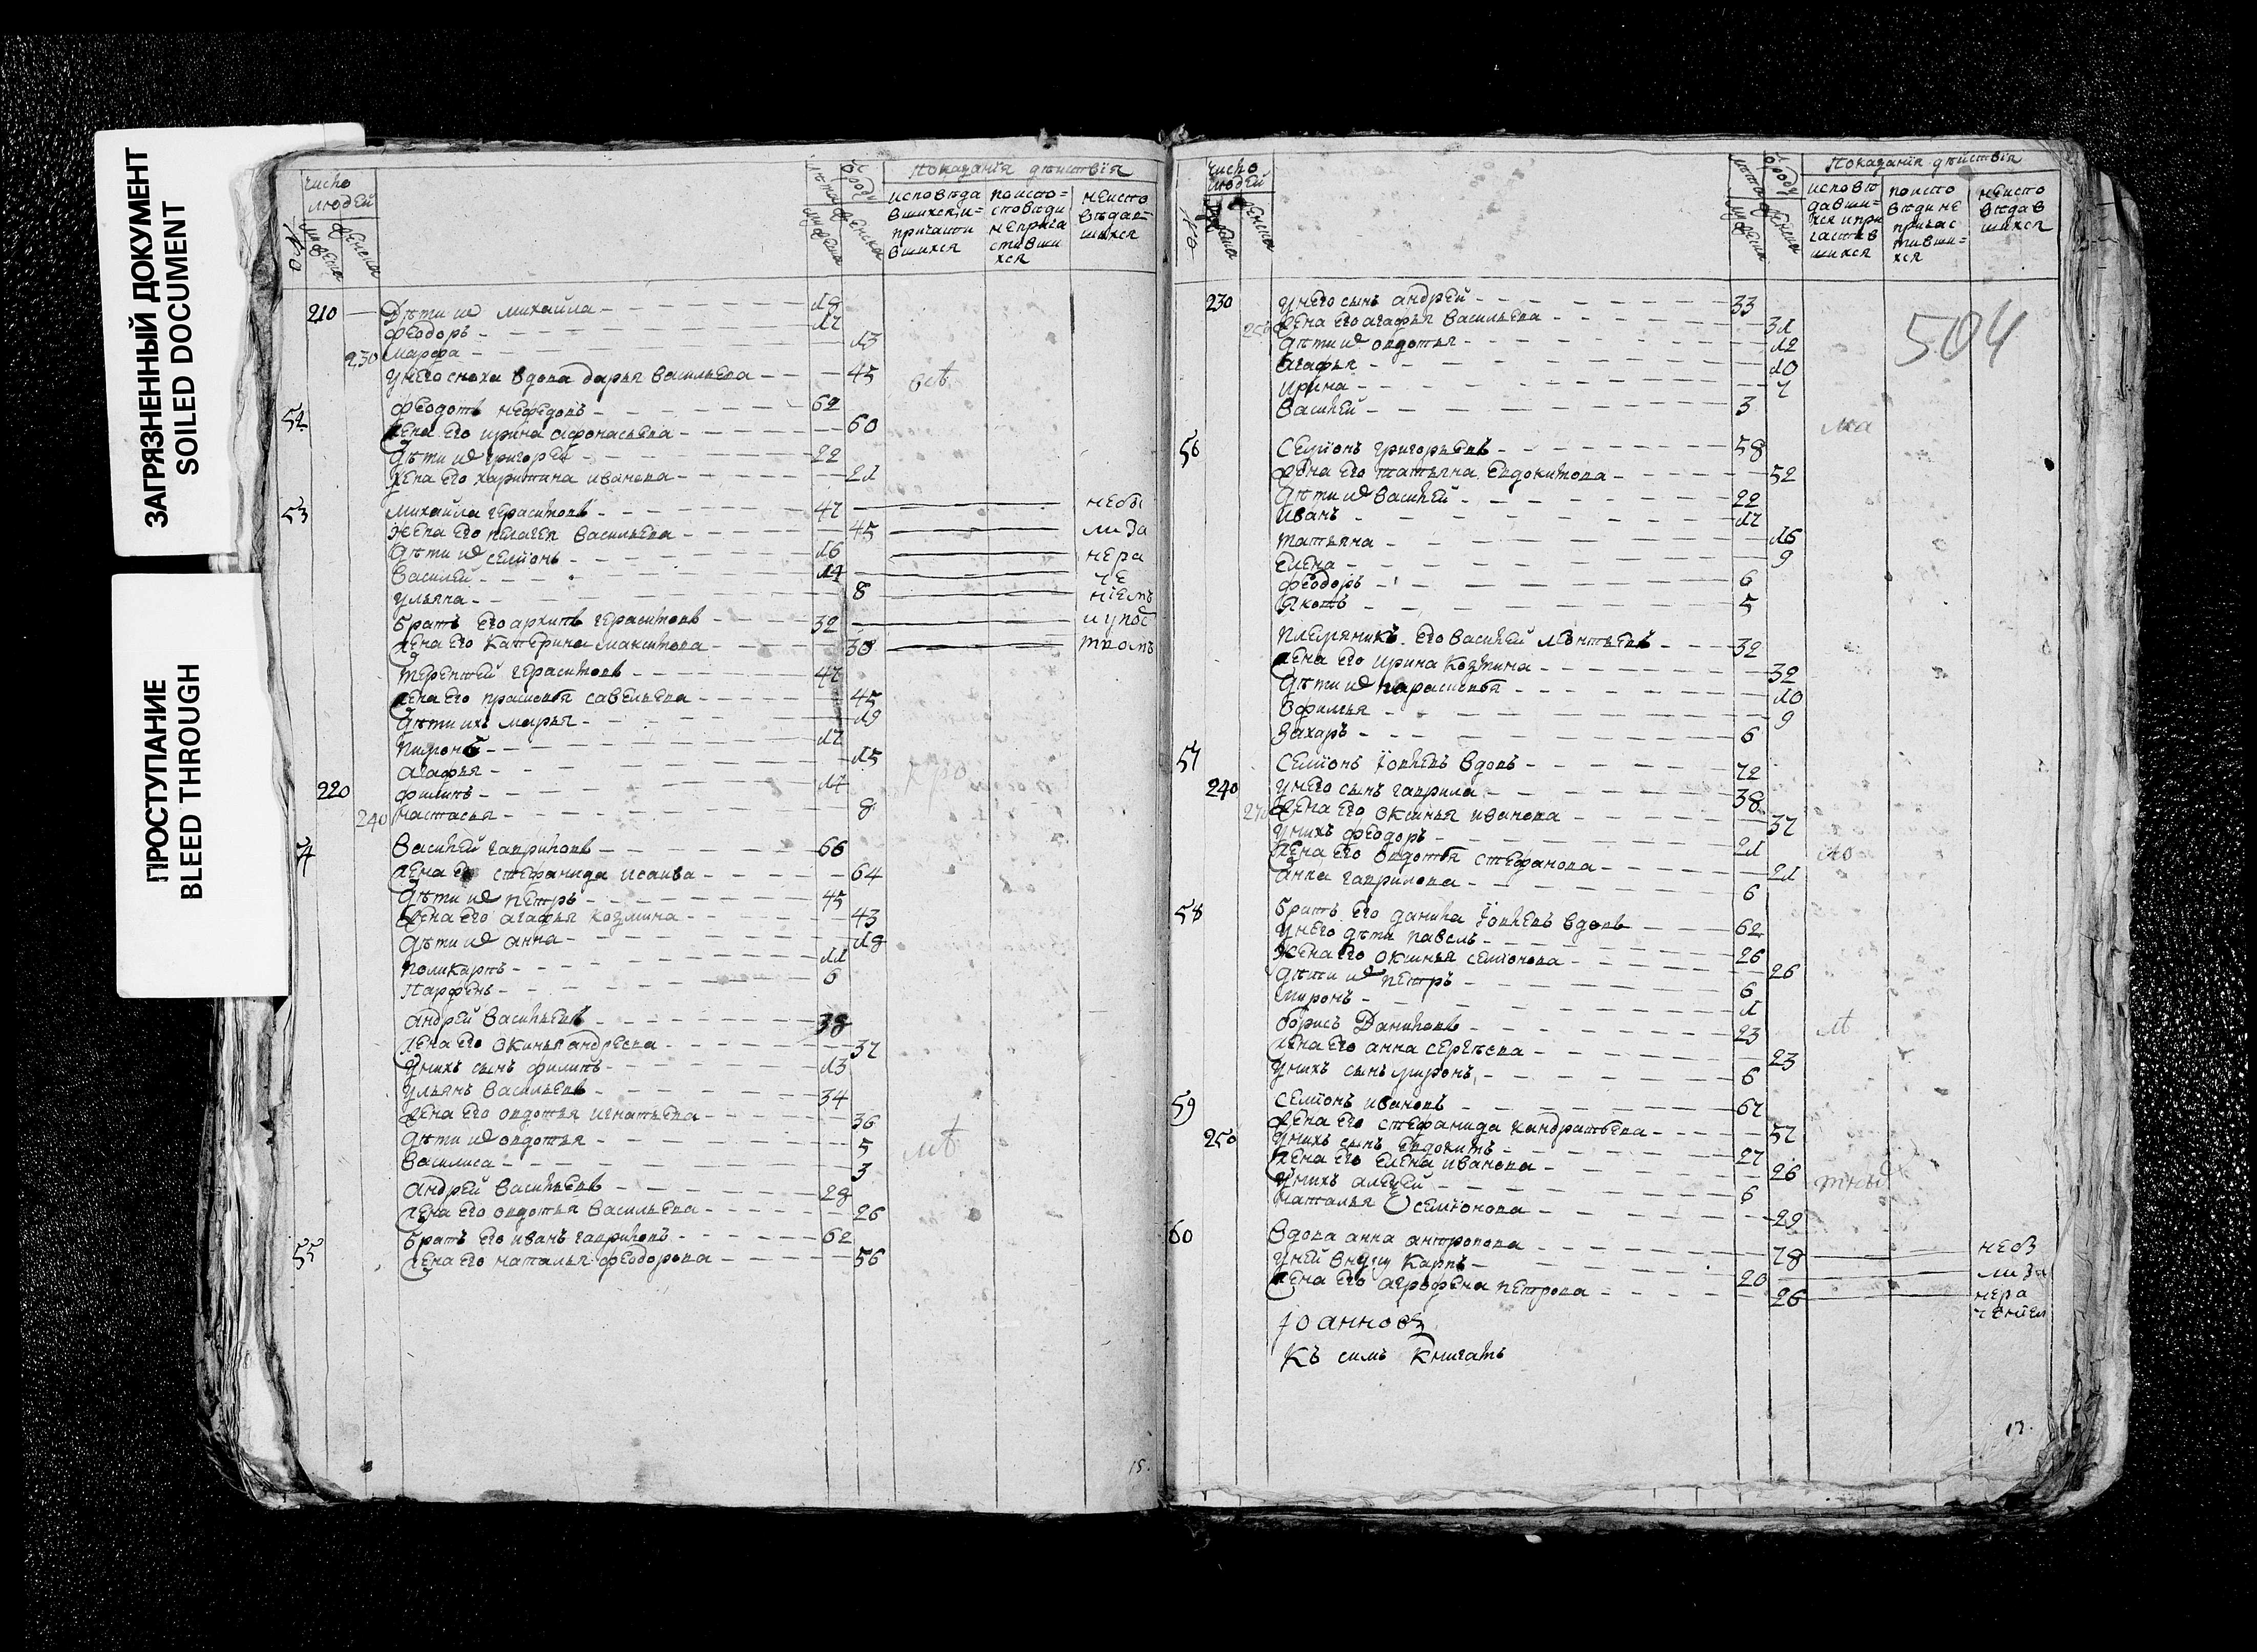 ЗАГРЯЗНЕННЫЙ ДОКУМЕНТ
SOILED DOCUMENT
ПРОСТУПАНИЕ
BLEED THROUGH
число людей
Показанїя дѣйствїя
исповѣдавшихся и причастившихся
по исповѣди не причастившихся
не исповѣдавшихся
210 Дѣти их михайла 19
феодоръ 17
230 марфа 13
у него сноха вдова дарья васильева 45
52 феодотъ нефедовъ 62
жена его ирина афонасьева 60
дѣти их григорей 22
жена его харитина иванова 21
53 михайла герасимовъ 47 необ
жена его пелагея васильева 45 ли за
дѣти их семïонъ 16 нера
василей 14 че
ульяна 8 нïемъ
братъ его архипъ герасимовъ 32
жена его катерина максимова 30
терентей герасимовъ 47
жена его прасковья савельева 45
дѣти ихъ марья 19
пимонъ 17
агафья 15
220 филипъ 14
240 настасья 8
54 василей гавриловъ 66
жена его стефанида исаива 64
дѣти их петръ 45
жена его агафья козмина 43
дѣти их анна 18
поликарпъ 11
парфенъ 6
андрей васильевъ 38
жена его окинья андреева 37
у нихъ сынъ филипъ 13
ульянъ васильевъ 34
жена его овдотья игнатьева 36
дѣти их овдотья 5
василиса 3
андрей васильевъ 28
жена его овдотья васильева 26
55 братъ его иванъ гавриловъ 62
жена его наталья феодорова 56
15.
число людей
Показанїя дѣйствїя
исповѣдавшихся и причастившихся
по исповѣди не причастившихся
не исповѣдавшихся
504
230 у него сынъ андрей 33
жена его агафья васильева 31
дѣти их овдотья 12
агафья 10
ирина 7
василей 3
56 семïонъ григорьевъ 58
жена его татьяна евдокимова 52
дѣти их василей 22
иванъ 17
татьяна 16
елена 9
феодоръ 6
яковъ 5
племяникъ его василей леонтьевъ 32
жена его ирина козмина 32
дѣти их парасковья 10
офимья 9
захаръ 6
57 семïонъ ïовлевъ вдовъ 72
240 у него сынъ гаврила 38
270 жена его оксинья иванова 37
у нихъ феодоръ 21
жена его овдотья стефанова 21
анна гаврилова 6
58 братъ его данила ïовлевъ вдовъ 62
у него дѣти павелъ 26
жена его оксинья семïонова 26
дѣти их петръ 6
миронъ 1
борисъ даниловъ 23
жена его анна сергѣева 23
у нихъ сынъ миронъ 6
59 семïонъ ивановъ 67
жена его стефанида кандратьева 57
250 у нихъ сынъ евдокимъ 27
жена его елена иванова 26
у нихъ алексей 6
наталья семïонова 29
60 вдова анна антропова 78 необ
у ней внукъ карпъ 20 ли за
жена его агрофена петрова 26 нера
ченïем
Къ симъ книгамъ
17.